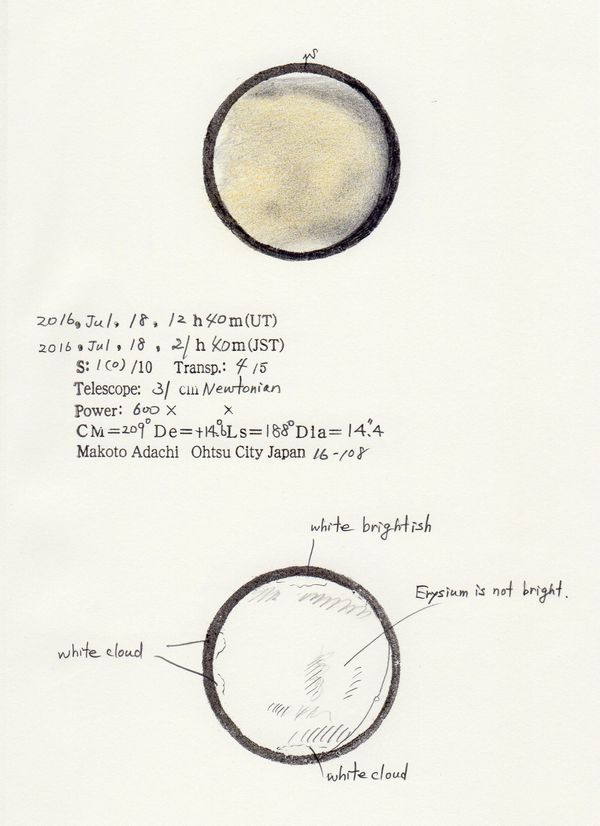 2016, Jul, 18, 12 h 40 m (UT)
2016, Jul, 18, 21 h 40 m (JST)
S: 1(0)/10 Transp.: 4/5
Telescope: 31 cm Newtonian
Power: 600 × ×
CM=209° De=+14.°6 Ls=188° Dia=14."4
Makoto Adachi Ohtsu City Japan 16-108
white brightish
Erysium is not bright.
white cloud
white cloud